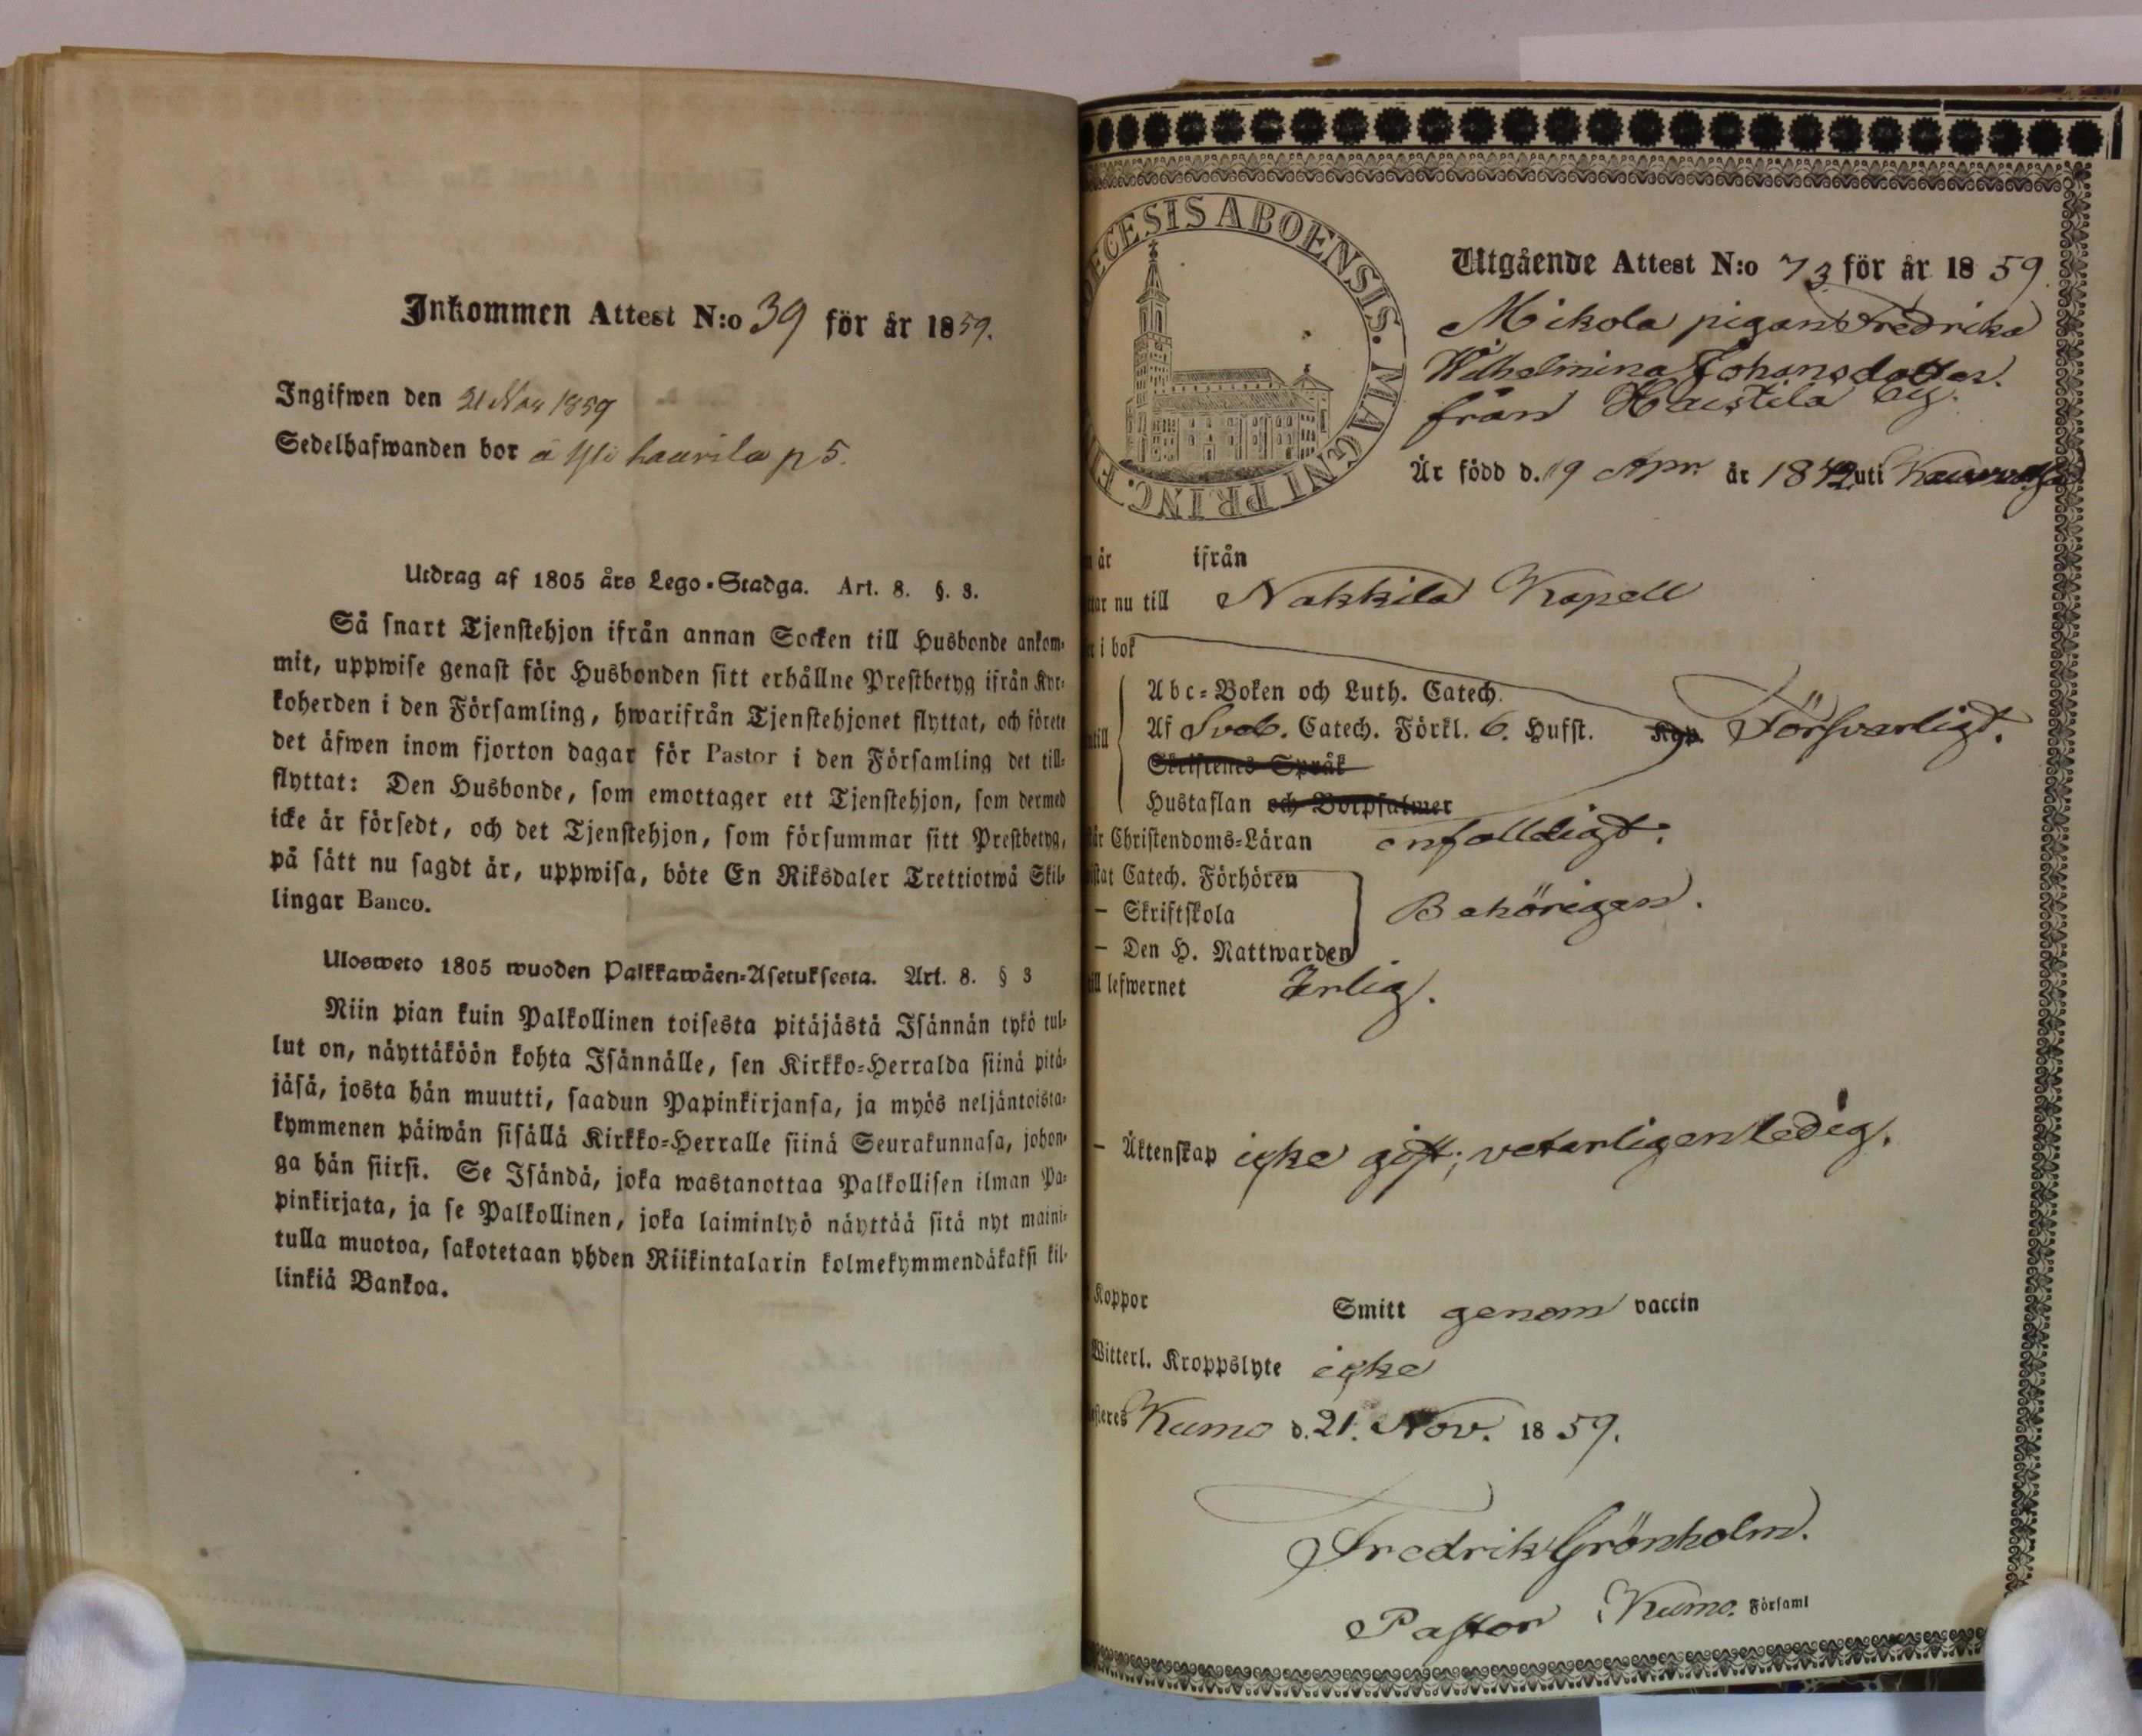 Inkommen Attest N:o 39 för år 1859.
Ingifwen den 21 Nov 1859
Sedelhafwanden bor å Yli haurila p 5.
Utdrag af 1805 års Lego-Stadga. Art. 8. §. 3.
Så snart Tjenstehjon ifrån annan Socken till Husbonde ankom-
mit, uppwise genast för Husbonden sitt erhållne Prestbetyg ifrån Kyr-
koherden i den Församling, hwarifrån Tjenstehjonet flyttat, och förete
det äfwen inom fjorton dagar för Pastor i den Församling det till-
flyttat: Den Husbonde, som emottager ett Tjenstehjon, som dermed
icke är försedt, och det Tjenstehjon, som försummar sitt Prestbetyg,
på sätt nu sagdt är, uppwisa, böte En Riksdaler Trettiotwå Skil-
lingar Banco.
Ulosweto 1805 wuoden Palkkawäen-Asetuksesta. Art. 8. § 3
Niin pian kuin Palkollinen toisesta pitäjästä Isännän tykö tul-
lut on, näyttäköön kohta Isännälle, sen Kirkko-Herralda siinä pitä-
jäsä, josta hän muutti, saadun Papinkirjansa, ja myös neljäntoista-
kymmenen päiwän sisällä Kirkko-Herralle siinä Seurakunnasa, johon-
ga hän siirsi. Se Isändä, joka wastanottaa Palkollisen ilman Pa-
pinkirjata, ja se Palkollinen, joka laiminlyö näyttää sitä nyt maini-
tulla muotoa, sakotetaan yhden Riikintalarin kolmekymmendäkaksi kil-
linkiä Bankoa.
ECESIS ABOENSIS. MAGNI PRINC. F
Utgående Attest N:o 73 för år 1859.
Mikola pigan Fredrika
Wilhelmina Johansdotter.
från Haistila by.
Är född d. 19 Apr. år 1842 uti
år ifrån
tar nu till Nakkila Kapell
i bok
Abc-Boken och Luth. Catech.
till Af Sveb. Catech. Förkl. 6. Hufst. Kap. Försvarligt.
Skriftenes Språk
Hustaflan och Botpsalmer
Christendoms-Läran enfalldigt.
stat Catech. Förhören
– Skriftskola Behörigen.
– Den H. Nattwarden
till lefwernet Ärlig.
– Äktenskap icke gift; veterligen ledig.
Koppor Smitt genom vaccin
Witterl. Kroppslyte icke
steres Kumo d. 21. Nov. 1859.
Fredrik Grönholm.
Pastor i Kumo. Församl